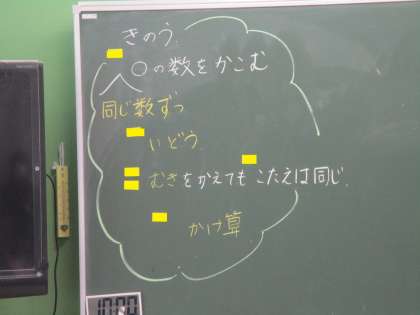 きのう
○の数をかこむ
同じ数ずつ
いどう
むきをかえても こたえは同じ.
かけ算